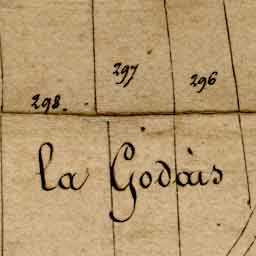 297 296
298.
la Godais